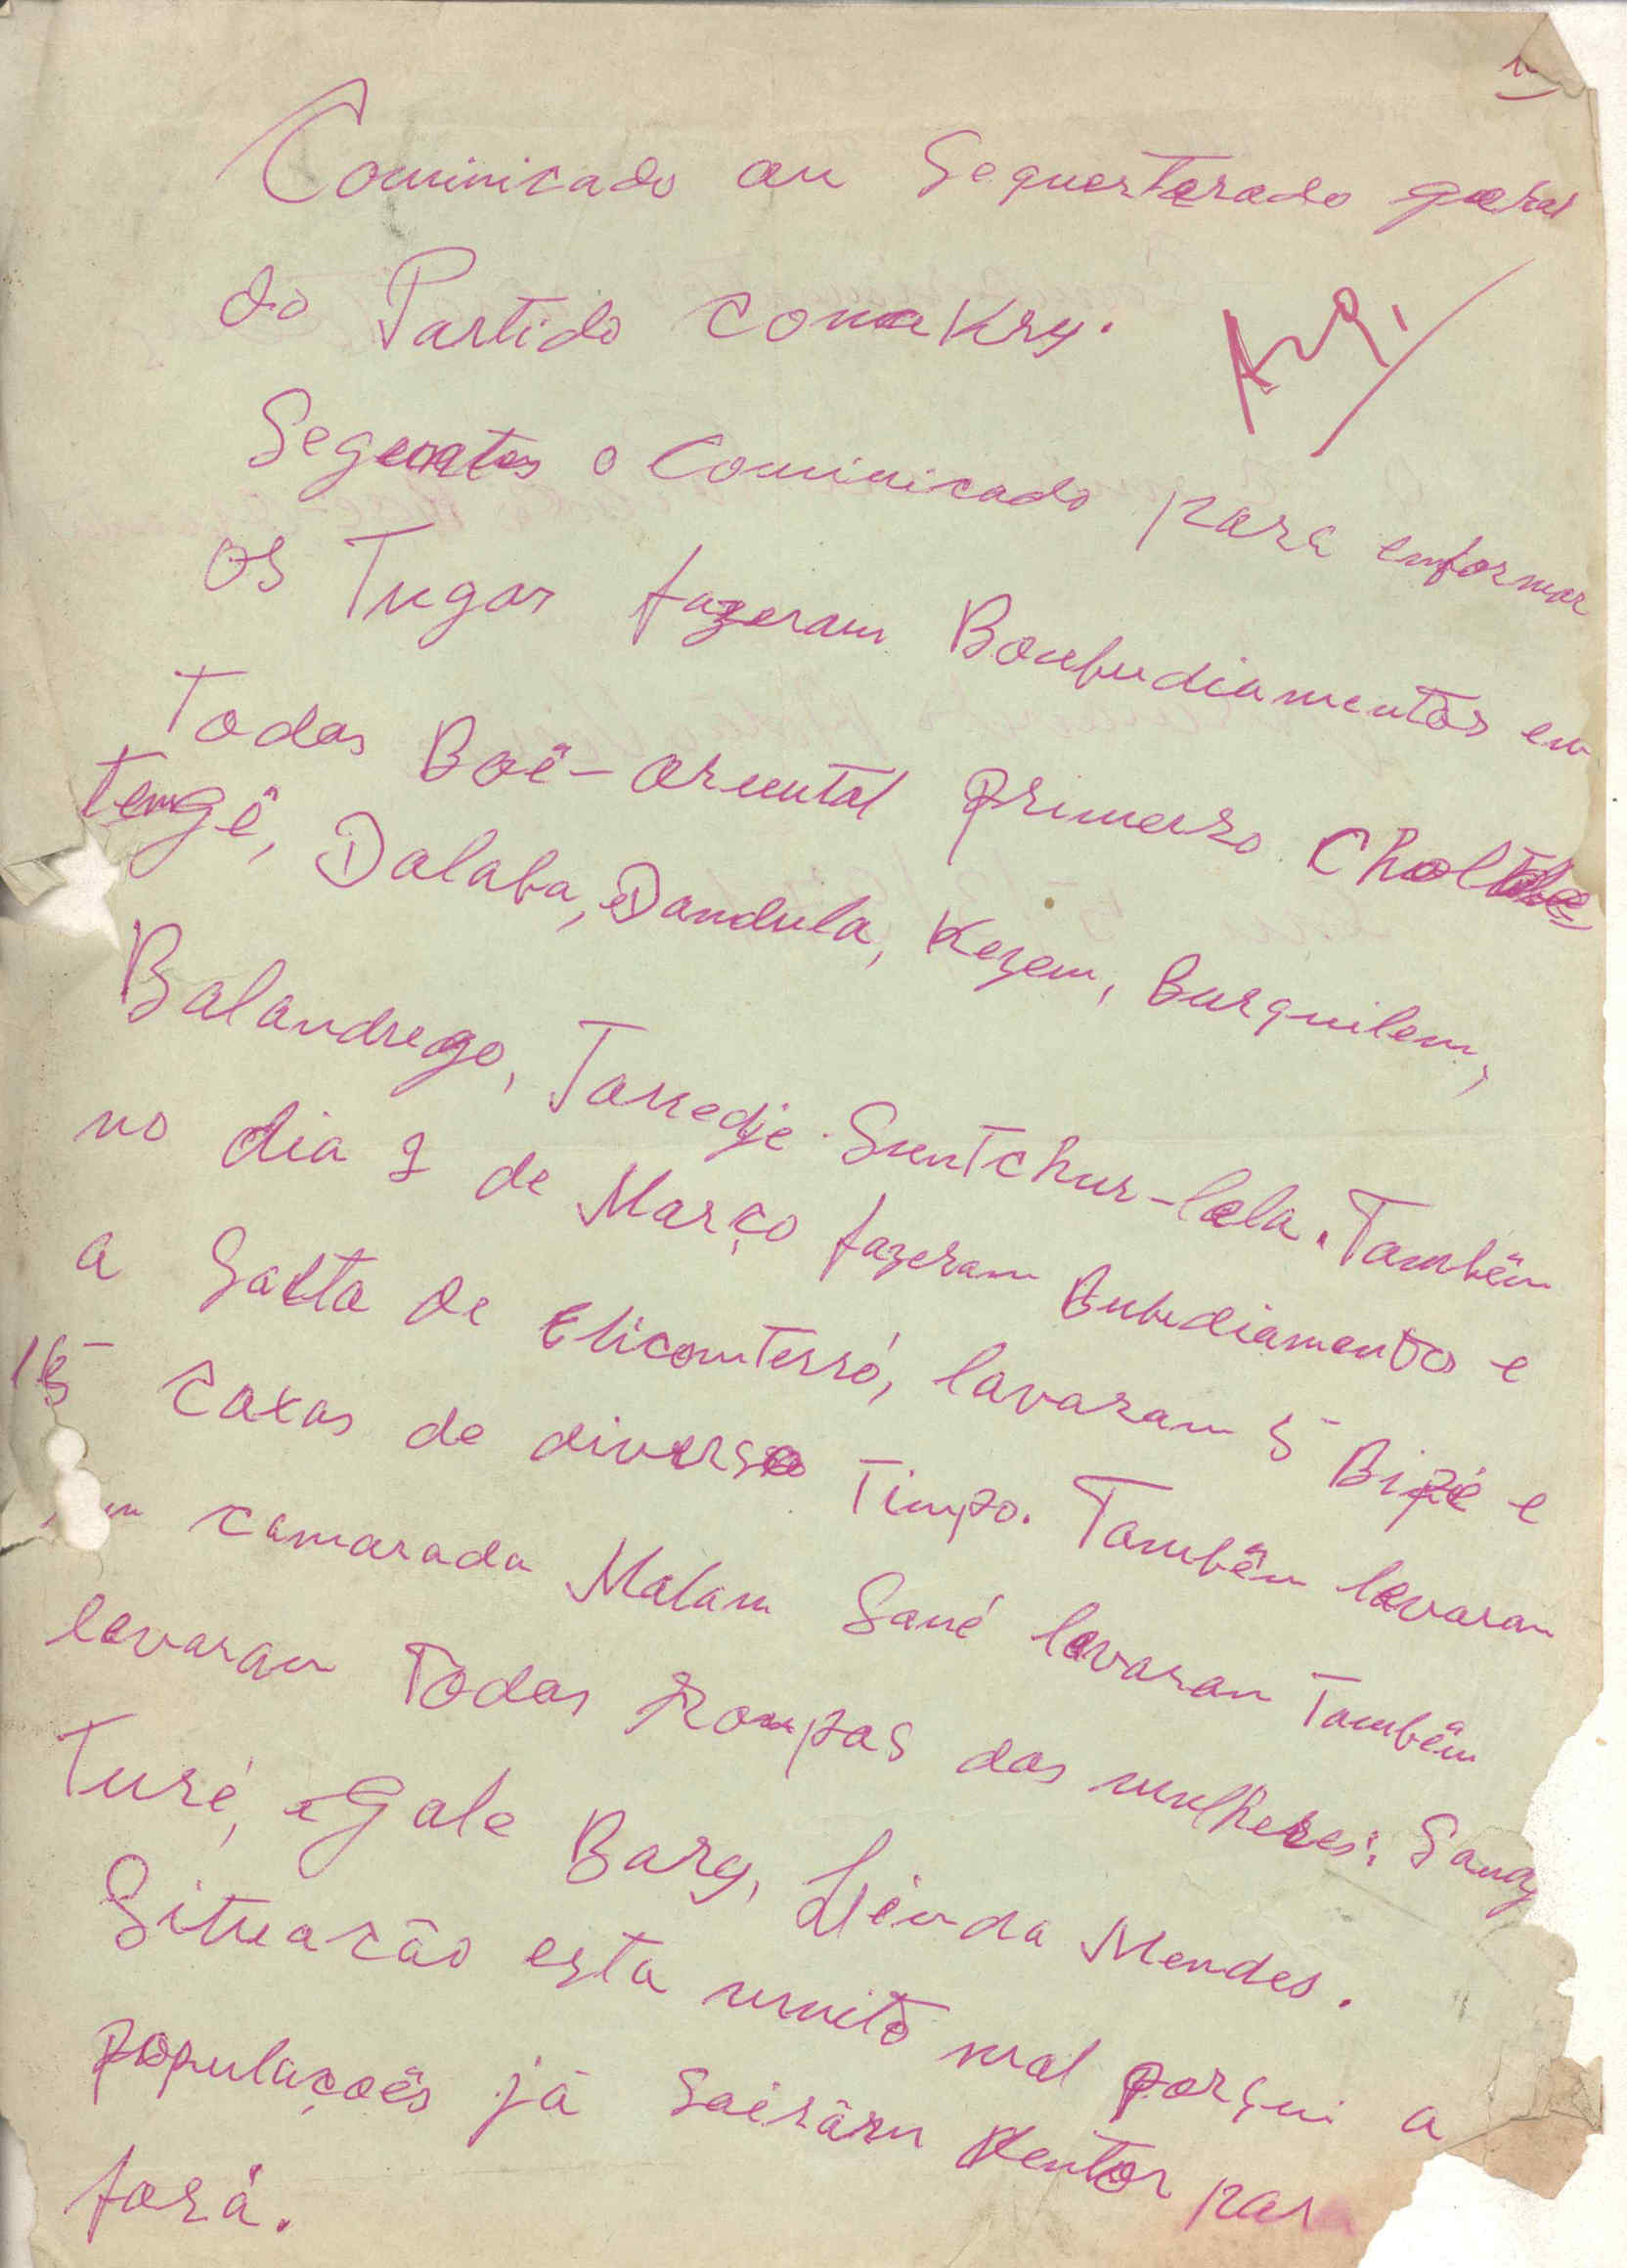 Cominicado au Sequerterado geral
do Partido conakry.
Seguntes o Cominicado para enformar
os Tugas fazeram Bonbudiamentos em
Todas Boê-oriental primeiro Chol
tengê, Dalaba, Dandula, Kezem, Burquilem,
Balandrego, Tanedje Suntchur-lala. Tambêm
no dia 2 de Março fazeram Bubediamentos e
a Salta de Elicomterró, lavaram 5 Bipé e
15 Caxas de diverso Timpo. Tambêm levaram
camarada Malam Sané levaram Tambêm
levaram Todas Roupas das mulheres: Sana
Turé, Gale Barg, Linda Mendes.
Situacão esta muito mal porqui a
populaçoês já sairãm Kentor par
forá.